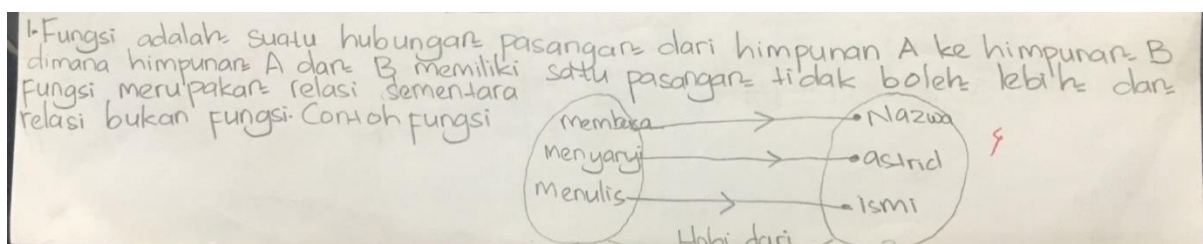 1. Fungsi adalah suatu hubungan pasangan dari himpunan A ke himpunan B
dimana himpunan A dan B memiliki satu pasangan tidak boleh lebih dan
Fungsi merupakan relasi sementara
relasi bukan fungsi. Contoh fungsi
membaca Nazwa
menyanyi astrid
menulis ismi
Hobi dari